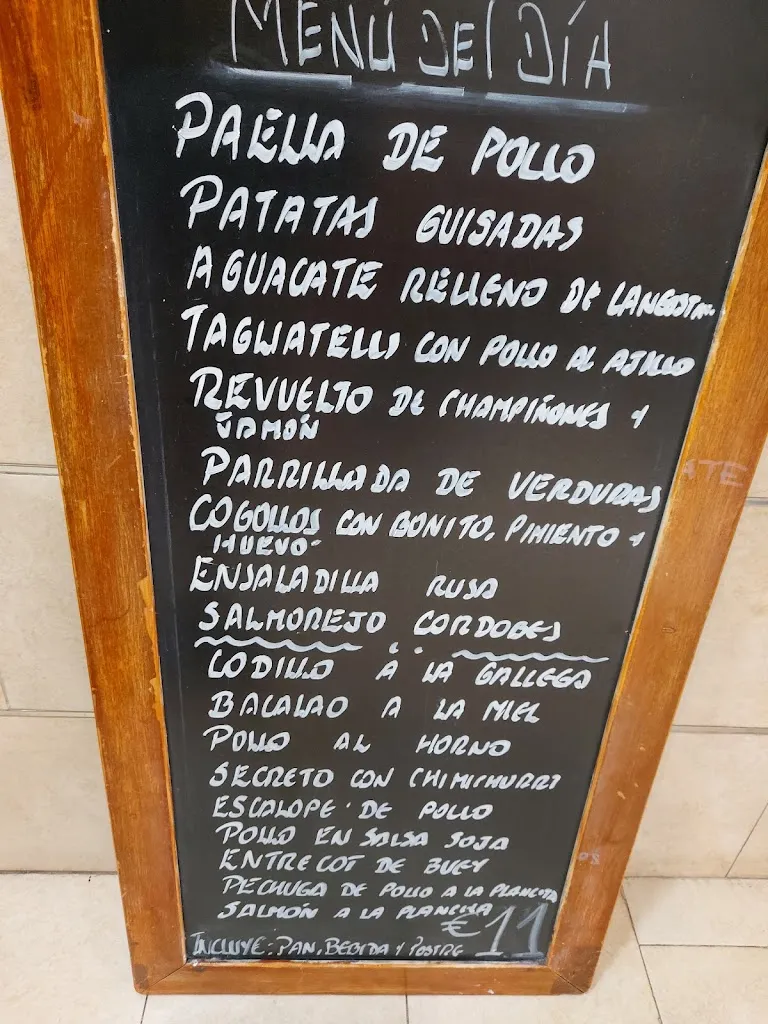 MENÚ DEL DÍA
PAELLA DE POLLO
PATATAS GUISADAS
AGUACATE RELLENO DE
TAGLIATELLIS CON POLLO AL AJILLO
REVUELTO DE CHAMPIÑONES Y
JAMÓN
PARRILLADA DE VERDURAS
COGOLLOS CON BONITO, PIMIENTO Y
HUEVO
ENSALADILLA RUSA
SALMOREJO CORDOBES
CODILLO A LA GALLEGA
BACALAO A LA MIEL
POLLO AL HORNO
SECRETO CON CHIMICHURRI
ESCALOPE DE POLLO
POLLO EN SALSA SOJA
ENTRECOT DE BUEY
PECHUGA DE POLLO A LA PLANCHA
SALMÓN A LA PLANCHA
€ 11
INCLUYE: PAN, BEBIDA Y POSTRE